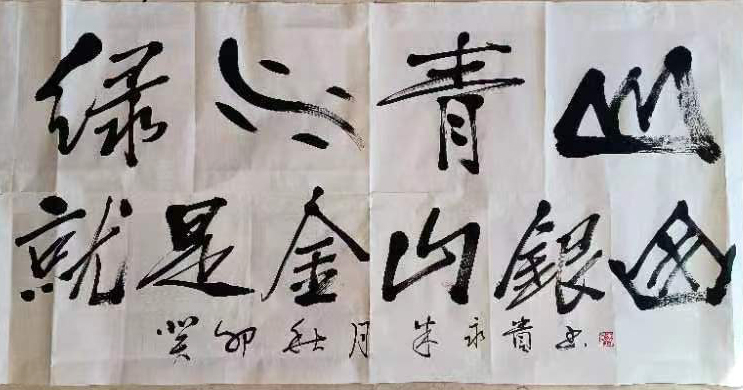 绿水青山
就是金山銀山
癸卯秋月 朱永貴书